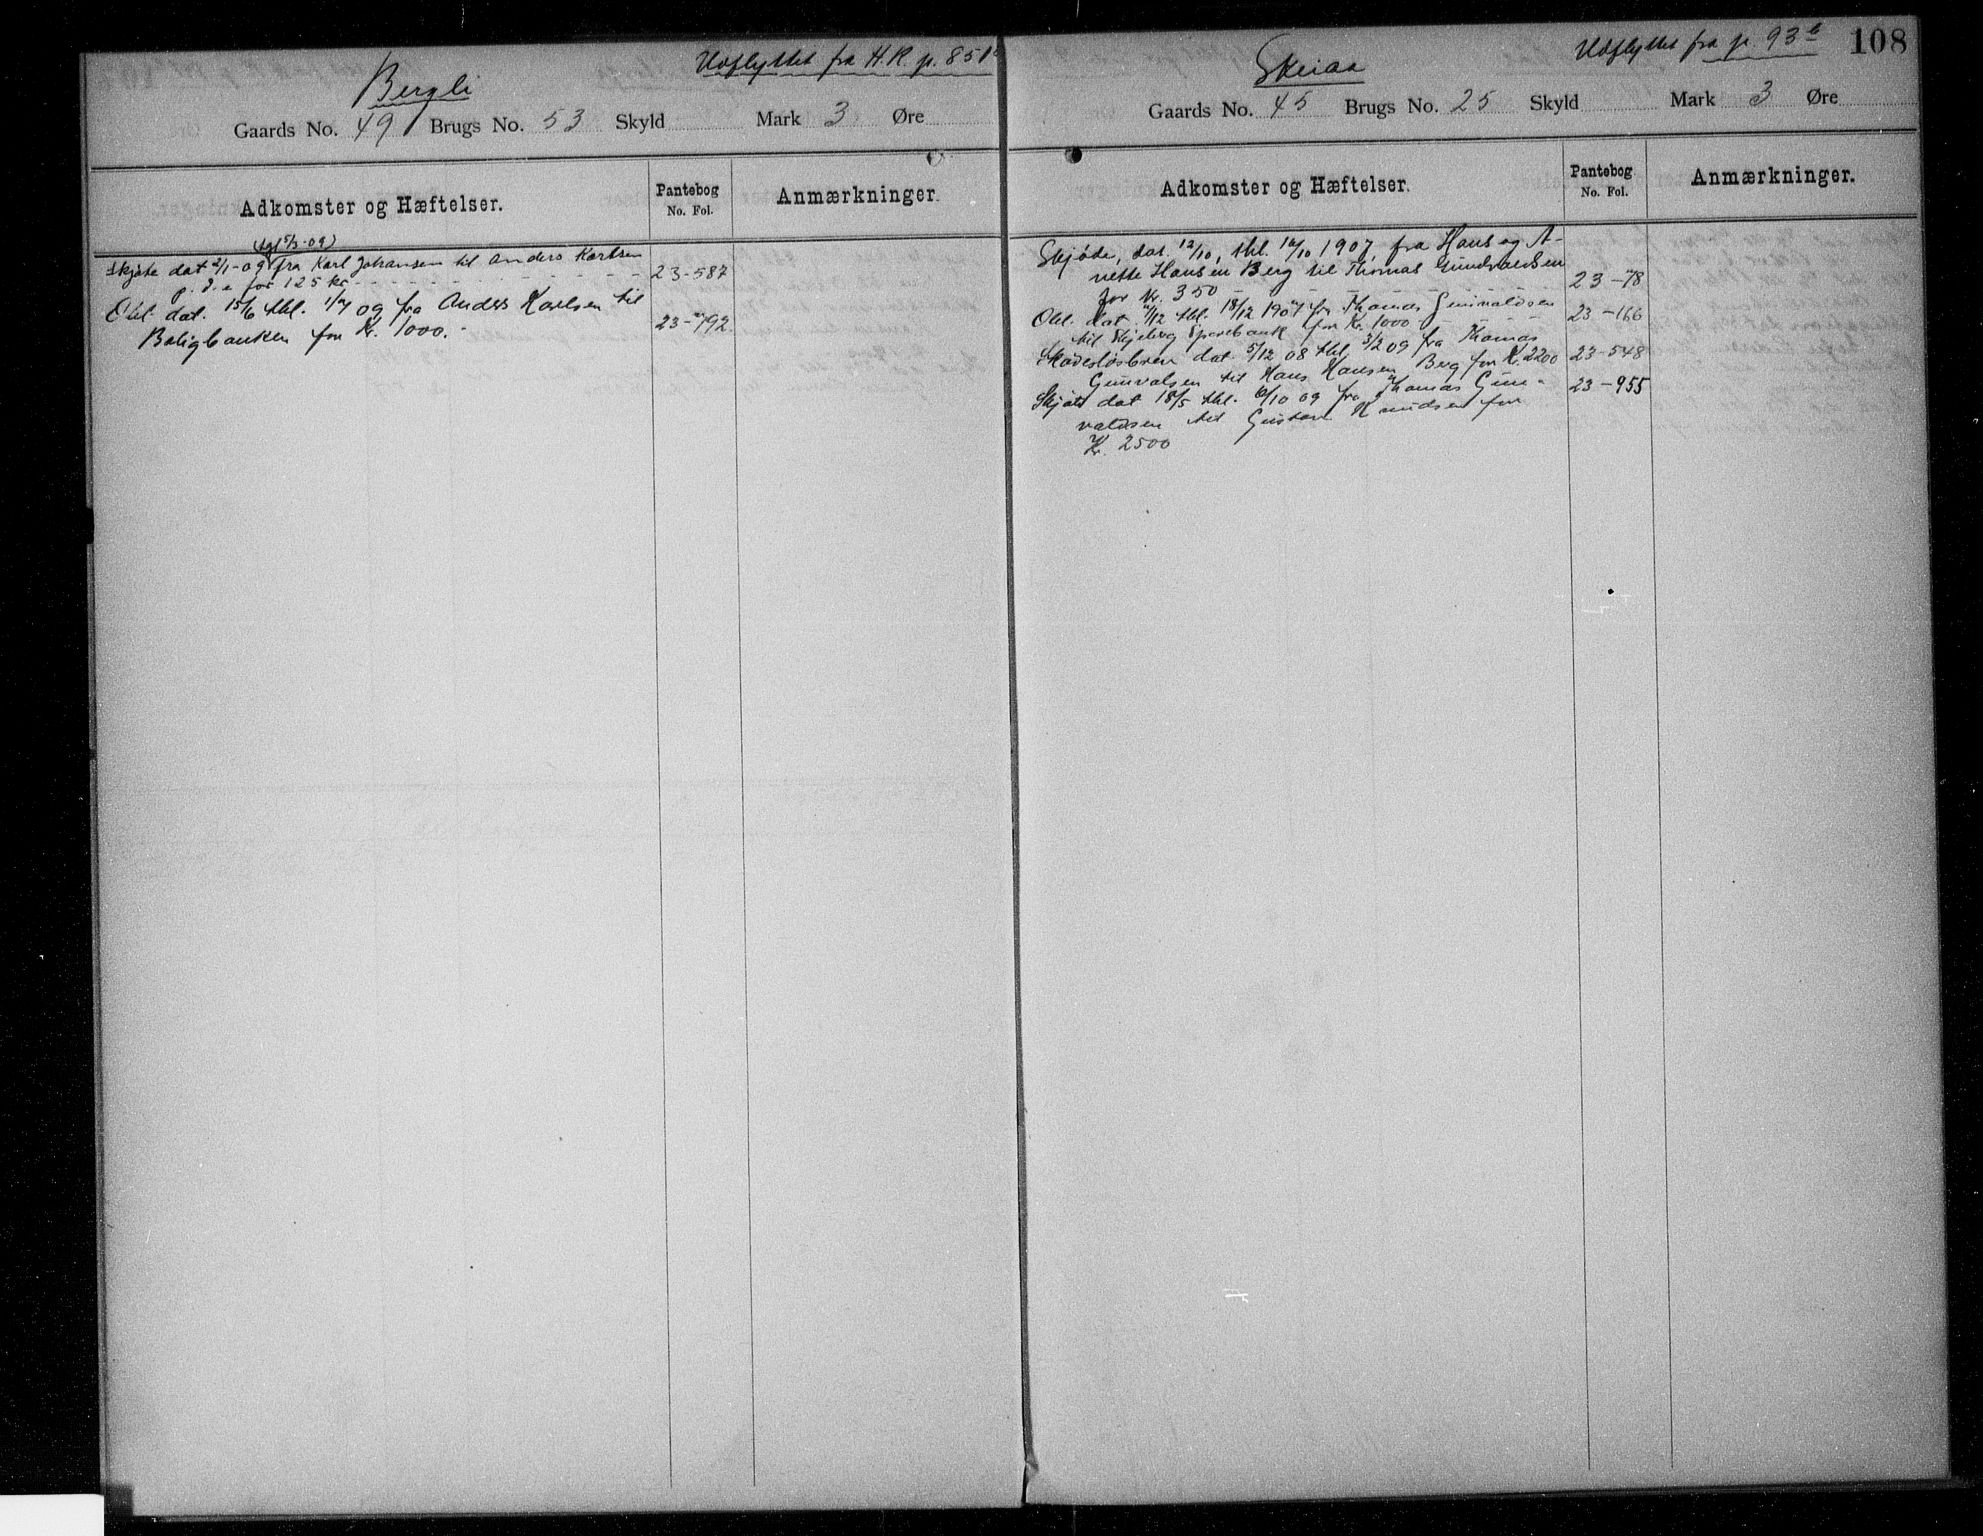 Udflyttet fra H.R. p. 851
Bergli
Gaards No. 49 Brugs No. 53 Skyld Mark 3 Øre
Adkomster og Hæftelser. Pantebog No. Fol. Anmærkninger.
(tgl 5/3-09)
Skjøte dat 2/1-09 fra Karl Johansen til Anders Karlsen 23-587
p. d. e for 125 kr
Obl. dat. 15/6 tbl. 1/7 09 fra Anders Karlsen til
Boligbanken for Kr. 1000.- 23-792
108
Udflyttet fra p. 93b
Skiaa
Gaards No. 45 Brugs No. 25 Skyld Mark 3 Øre
Adkomster og Hæftelser. Pantebog No. Fol. Anmærkninger.
Skjøde, dat. 12/10, thl. 16/10 1907, fra Hans og A-
nette Hansen Berg til Thomas Gundvaldsen
for Kr. 350 23-78
Obl. dat 7/12 tbl. 18/12 1907 fra Thomas Gunvaldsen
til Skjeberg Sparebank for Kr. 1000 23-166
Skadesløsbrev dat. 5/12 08 tbl 3/2 09 fra Thomas
Gunvalsen til Hans Hansen Berg for K. 2200 23-548
Skjøte dat 18/5 tbl. 6/10 09 fra Thomas Gun-
valdsen til Gustav Knudsen for 23-955
Kr. 2500